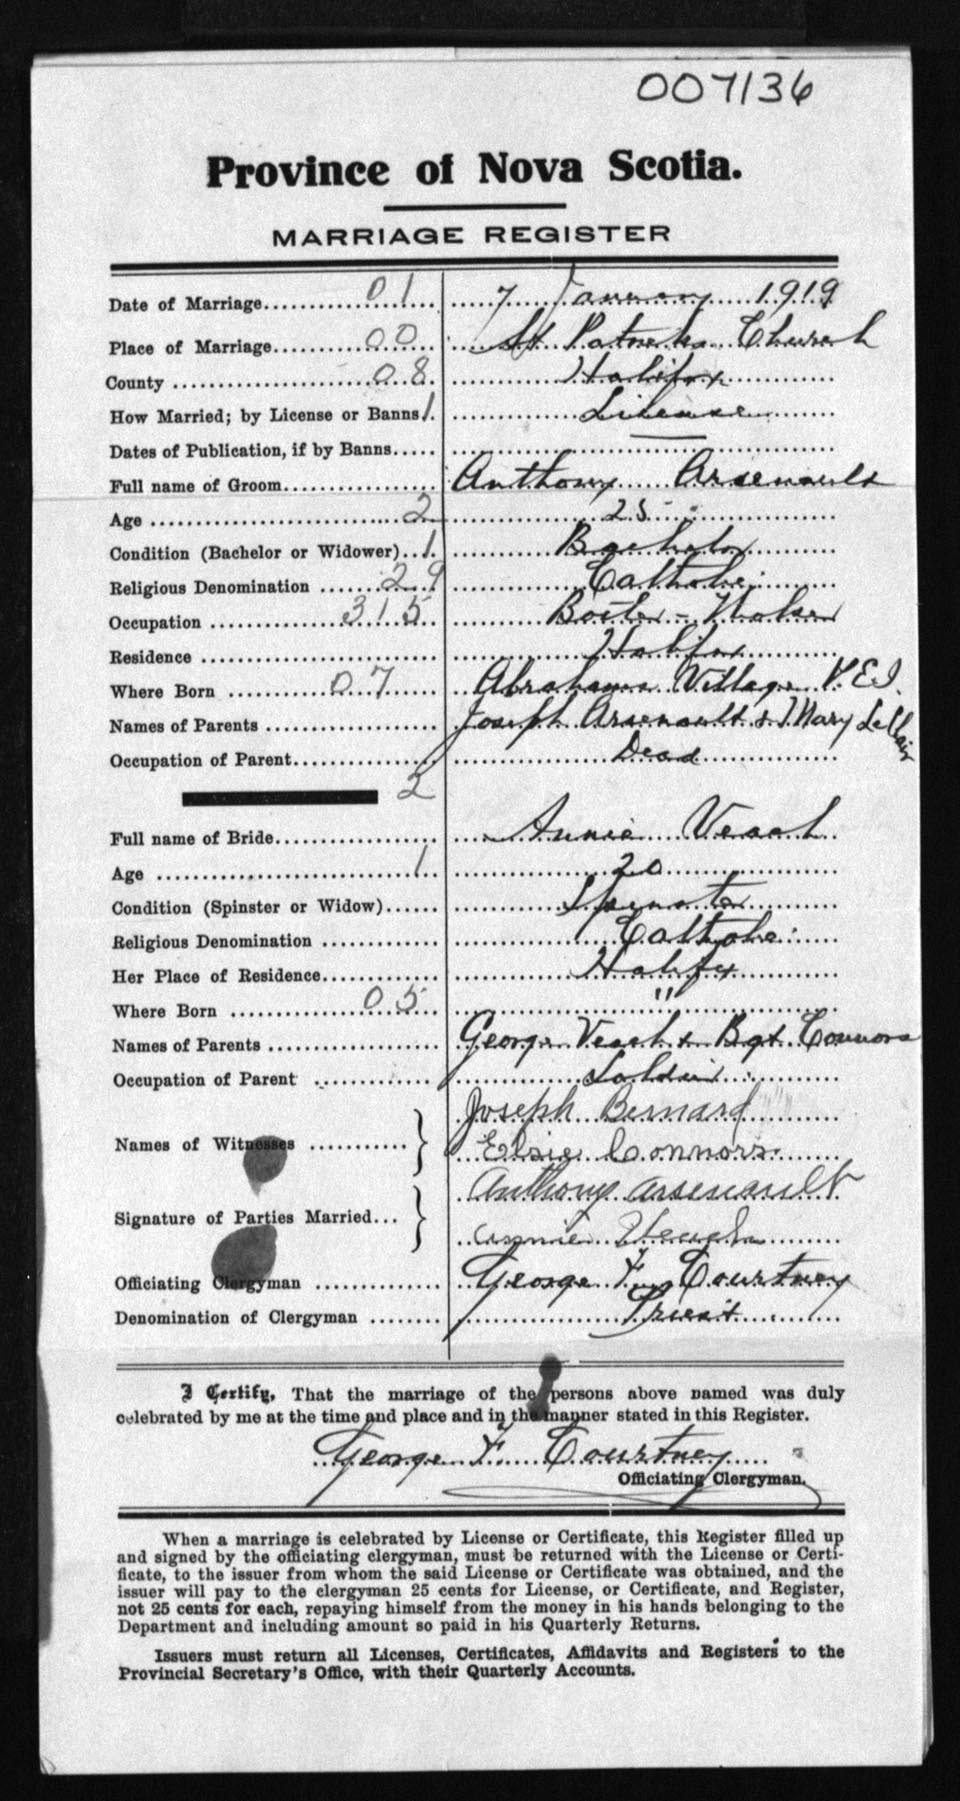 007136
Province of Nova Scotia.
MARRIAGE REGISTER
Date of Marriage 01 7 January 1919
Place of Marriage 00 St Patricks Church
County 08 Halifax
How Married; by License or Banns 1 License
Dates of Publication, if by Banns —
Full name of Groom Anthony Arsenault
Age 2 25
Condition (Bachelor or Widower) 1 Bachelor
Religious Denomination 29 Catholic
Occupation 315 Boiler-Maker
Residence Halifax
Where Born 07 Abrahams Village P.E.I.
Names of Parents Joseph Arsenault & Mary LeClair
Occupation of Parent Dead
2
Full name of Bride Annie Veach
Age 1 20
Condition (Spinster or Widow) Spinster
Religious Denomination Catholic
Her Place of Residence Halifax
Where Born 05 "
Names of Parents George Veach & Bgt Connors
Occupation of Parent Soldier
Names of Witnesses Joseph Bernard
Elsie Connors
Signature of Parties Married Anthony Arsenault
Annie Veach
Officiating Clergyman George F. Courtney
Denomination of Clergyman Priest
I Certify, That the marriage of the persons above named was duly
celebrated by me at the time and place and in the manner stated in this Register.
George F. Courtney
Officiating Clergyman.
When a marriage is celebrated by License or Certificate, this Register filled up
and signed by the officiating clergyman, must be returned with the License or Certi-
ficate, to the issuer from whom the said License or Certificate was obtained, and the
issuer will pay to the clergyman 25 cents for License, or Certificate, and Register,
not 25 cents for each, repaying himself from the money in his hands belonging to the
Department and including amount so paid in his Quarterly Returns.
Issuers must return all Licenses, Certificates, Affidavits and Registers to the
Provincial Secretary's Office, with their Quarterly Accounts.